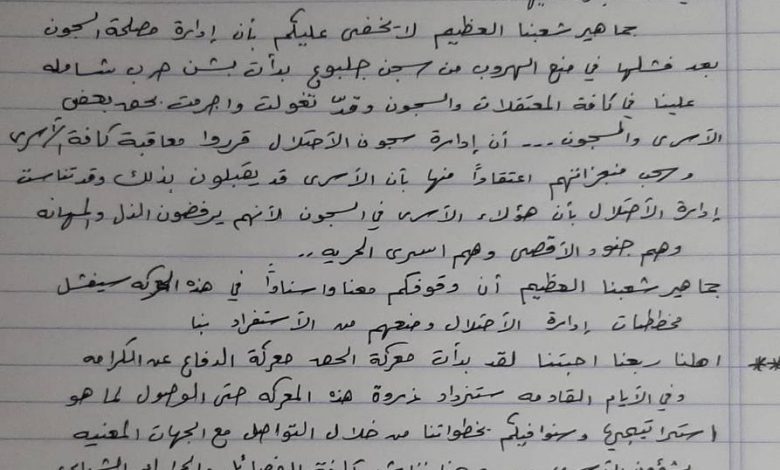 جماهير شعبنا العظيم لا يخفى عليكم بأن إدارة مصلحة السجون
بعد فشلها في منع الهروب من سجن جلبوع بدأت بشن حرب شامله
علينا في كافة المعتقلات والسجون وقد تغولت واجرمت بحق بعض
الأسرى والسجون --- أن إدارة سجون الأحتلال قرروا معاقبة كافة الأسرى
وسحب منجزاتهم اعتقاداً منها بأن الأسرى قد يقبلون بذلك وقد تناست
إدارة الأحتلال بأن هؤلاء الأسرى في السجون لأنهم يرفضون الذل والمهانه
وهم جنود الأقصى وهم اسرى الحريه ..
جماهير شعبنا العظيم أن وقوفكم معنا واسناداً في هذه المعركه سيفشل
مخططات إدارة الأحتلال ومنعهم من الأستفراد بنا
** اهلنا ربعنا احبتنا لقد بدأت معركة الحق معركة الدفاع عن الكرامه
وفي الأيام القادمه ستزداد ذروة هذه المعركه حتى الوصول لما هو
استراتيجي وسنوافيكم بخطواتنا من خلال التواصل مع الجهات المعنيه
كافة الفصائل